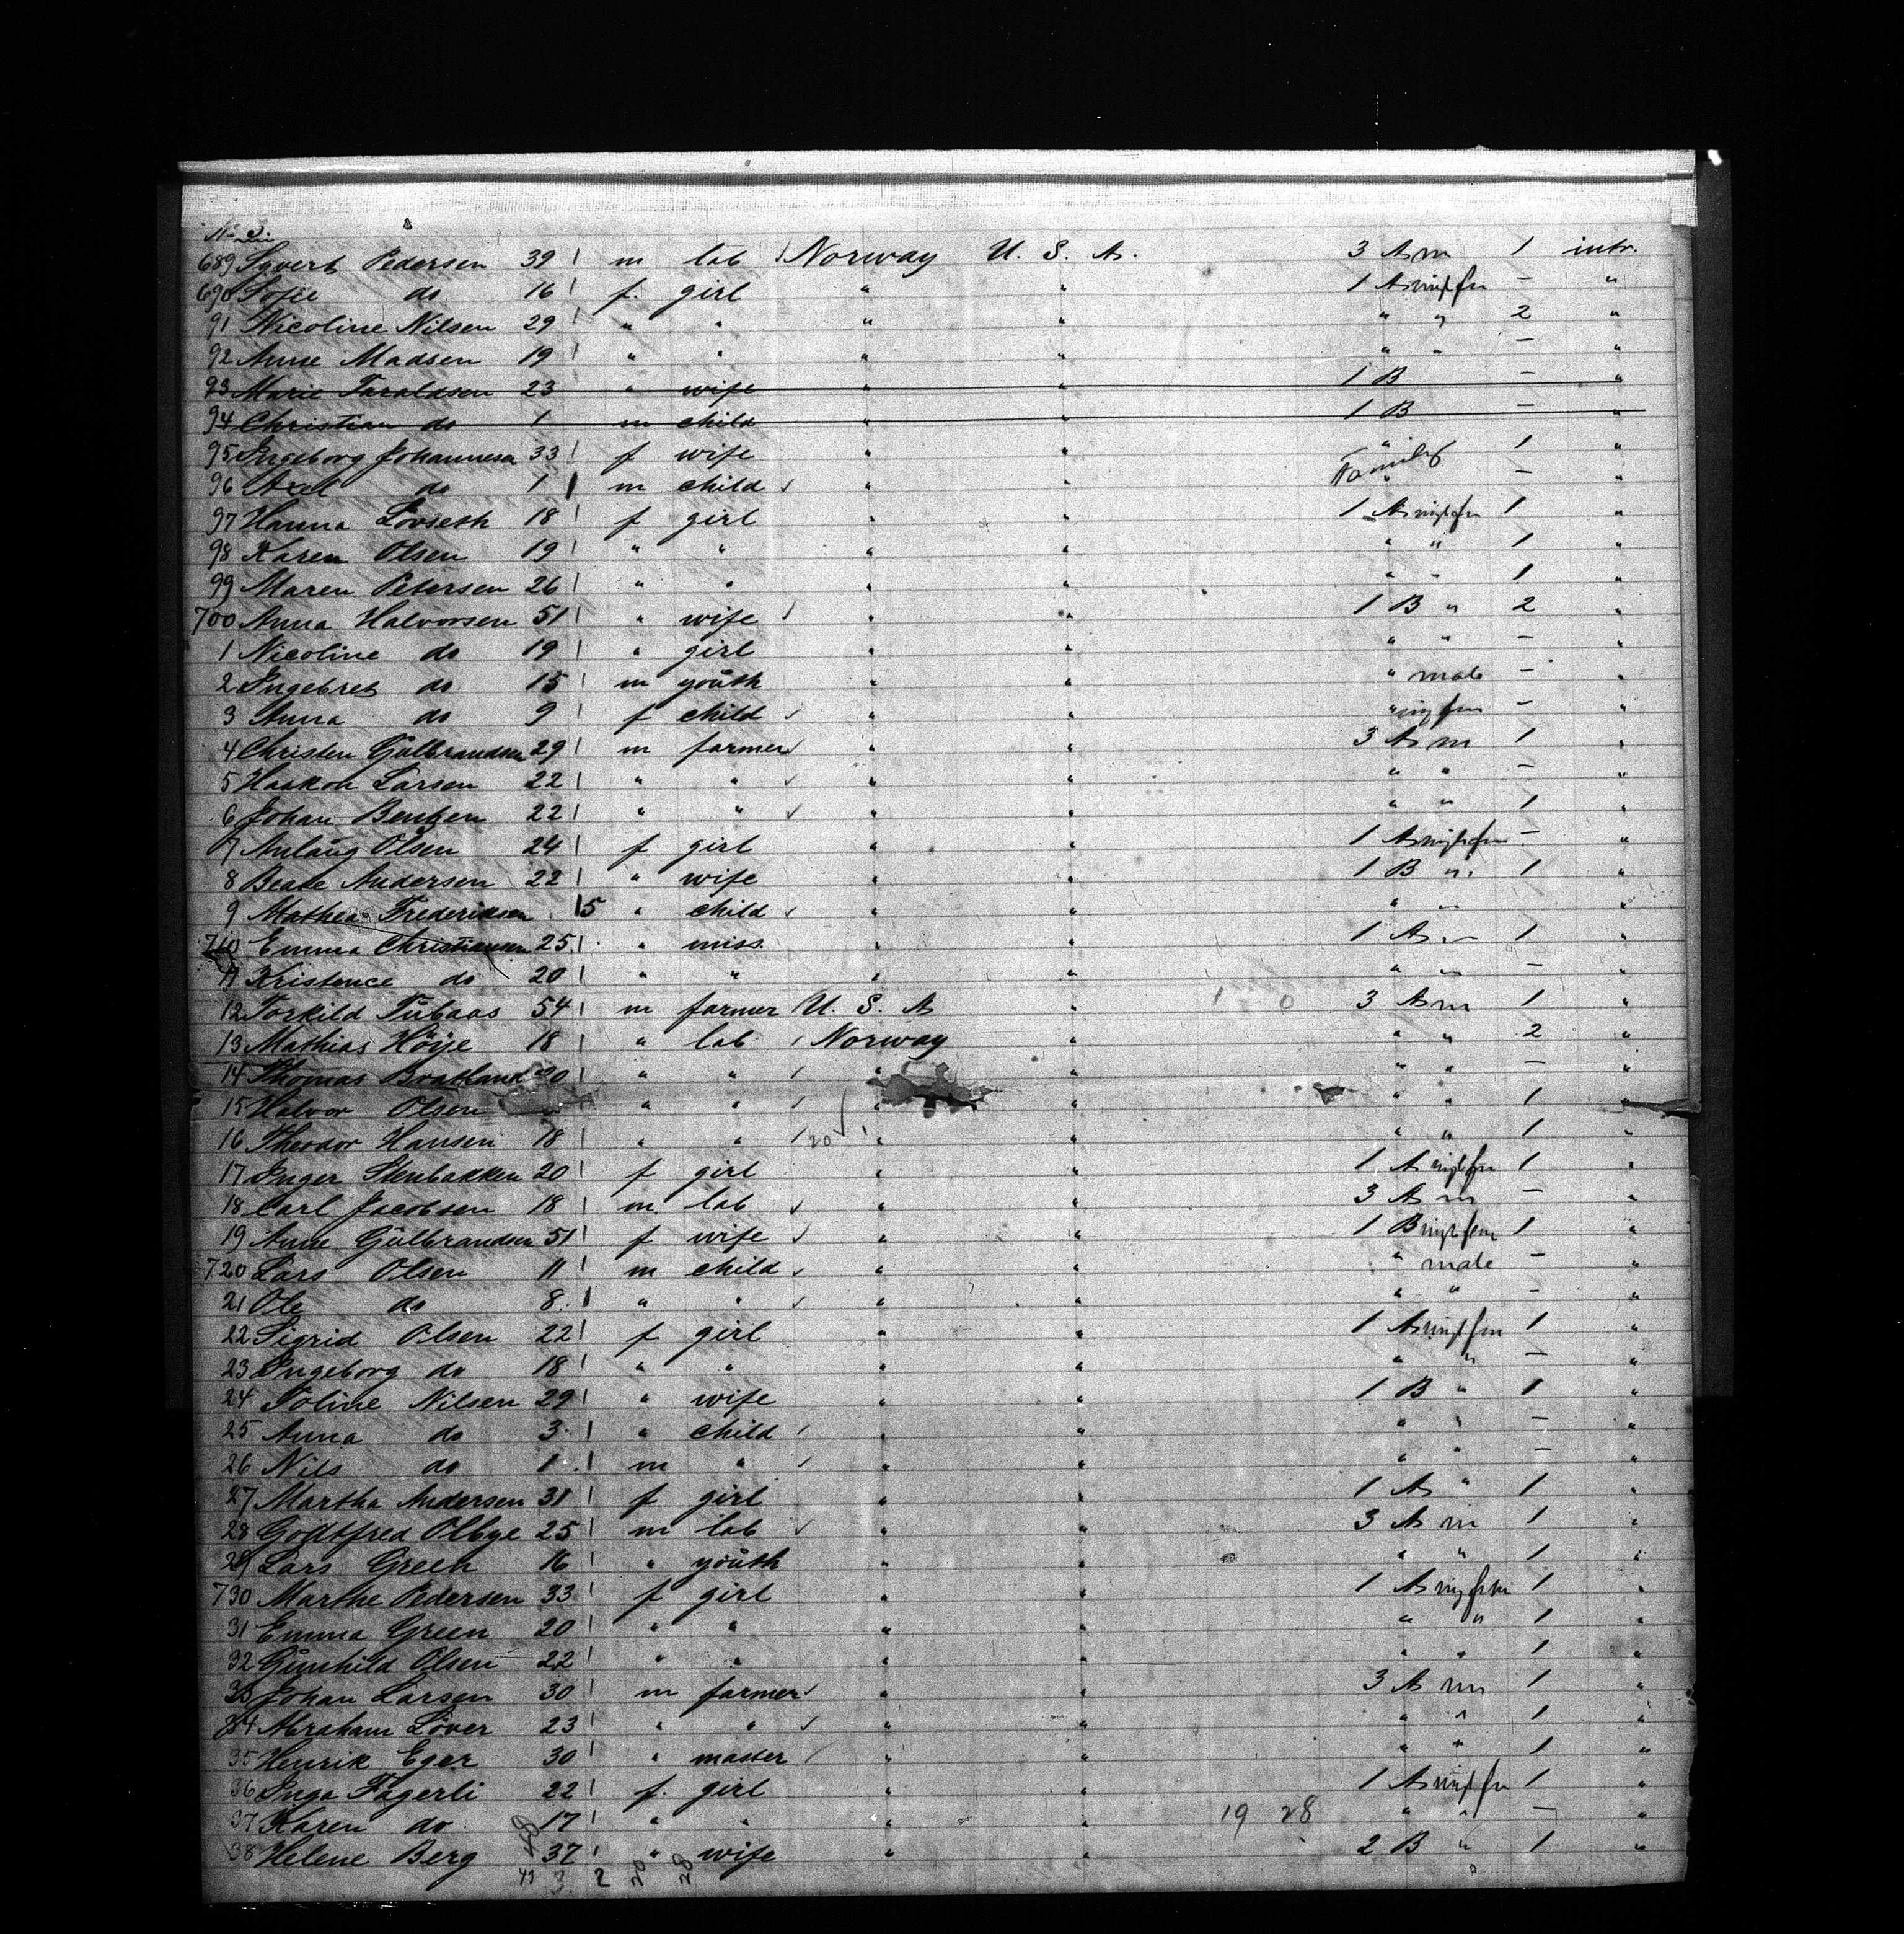 689 Syvert Pedersen 39 m lab Norway U. S. A. 3 A m 1 intr.
690 Sofie do 16 f. girl " " 1 A — "
91 Nicoline Nilsen 29 " " " " " " 2 "
92 Anne Madsen 19 " " " " " " — "
93 Marie Taraldsen 23 " wife " " 1 B — "
94 Christian do 1 m child " " 1 B — "
95 Ingeborg Johannesen 33 f wife " " " 1 "
96 Axel do 1 m child " " Family " — "
97 Hanna Lövseth 18 f girl " " 1 A 1 "
98 Karen Olsen 19 " " " " " " 1 "
99 Maren Petersen 26 " " " " " " 1 "
700 Anna Halvorsen 51 " wife " " 1 B " 2 "
1 Nicoline do 19 " girl " " " " — "
2 Ingebret do 15 m youth " " " male — "
3 Anna do 9 f child " " " — "
4 Christen Gulbrandsen 29 m farmer " " 3 A m 1 "
5 Haakon Larsen 22 " " " " " " — "
6 Johan Bentzen 22 " " " " " " 1 "
7 Aulaug Olsen 24 f girl " " 1 A — "
8 Beate Andersen 22 " wife " " 1 B " 1 "
9 Mathea Frederiksen 15 " child " " " " "
710 Emma Christiansen 25 " miss " " 1 A " 1 "
11 Kristence do 20 " " " " " " — "
12 Torkild Tubaas 54 m farmer U. S. A " 3 A m 1 "
13 Mathias Höye 18 " lab Norway " " " 2 "
14 Thomas Bratland 20 " " " " " " — "
15 Halvor Olsen " " " " " " 1 "
16 Theodor Hansen 18 " " 20 " " " " 1 "
17 Inger Stenbakken 20 f girl " " 1 A 1 "
18 Carl Jacobsen 18 m lab " " 3 A m — "
19 Anne Gulbrandsen 51 f wife " " 1 B 1 "
720 Lars Olsen 11 m child " " " male — "
21 Ole do 8 " " " " " " — "
22 Sigrid Olsen 22 f girl " " 1 A 1 "
23 Ingeborg do 18 " " " " " " — "
24 Toline Nilsen 29 " wife " " 1 B " 1 "
25 Anna do 3 " child " " " " — "
26 Nils do 1 m " " " " " — "
27 Martha Andersen 31 f girl " " 1 A " 1 "
28 Godtfred Olbye 25 m lab " " 3 A m 1 "
29 Lars Green 16 " youth " " " " 1 "
730 Marthe Pedersen 33 f girl " " 1 A 1 "
31 Emma Green 20 " " " " " " 1 "
32 Gunhild Olsen 22 " " " " " " 1 "
33 Johan Larsen 30 m farmer " " 3 A m 1 "
34 Abraham Löver 23 " " " " " " 1 "
35 Henrik Eger 30 " master " " " " 1 "
36 Inga Fagerli 22 f. girl " " 1 A 1 "
37 Karen do 17 " " " " 19 28 " " — "
38 Helene Berg 37 " wife " " 2 B " 1 "